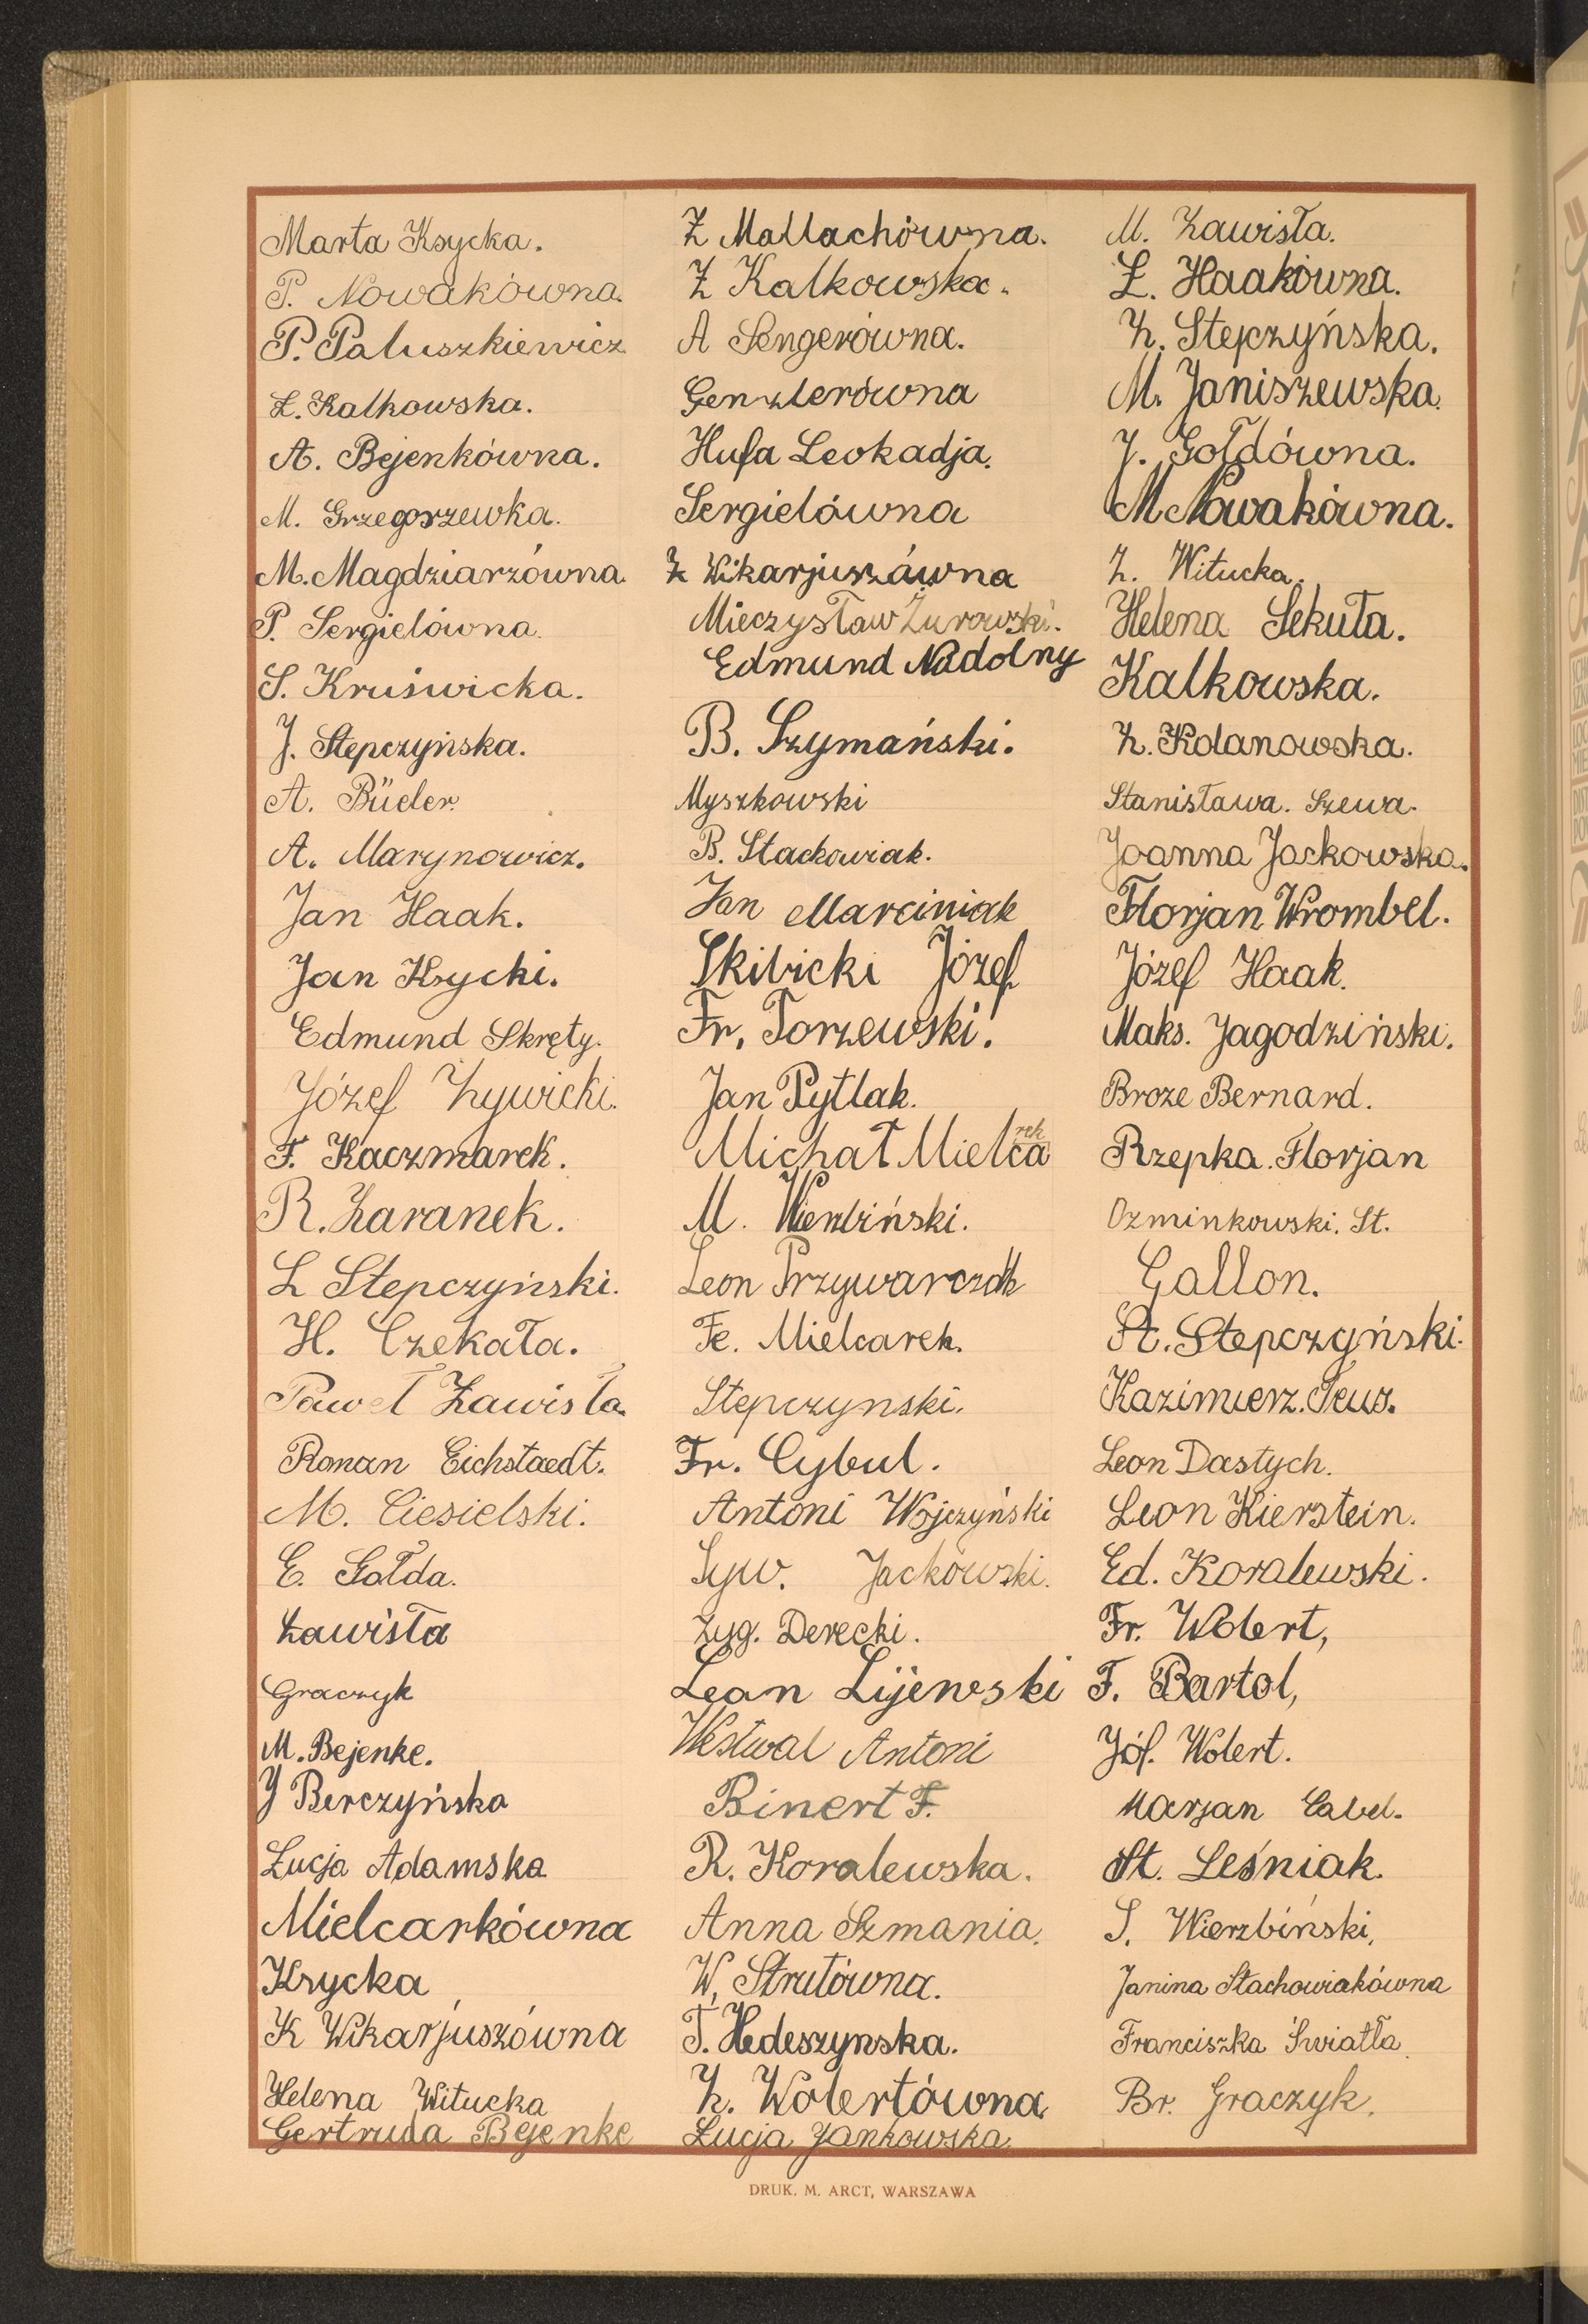 Marta Ksycka.
P. Nowakówna.
P. Paluszkiewicz
Z. Kalkowska.
A. Bejenkówna.
M. Grzegorzewka.
M. Magdziarzówna.
P. Sergielówna.
S. Kruświcka.
J. Stepczyńska.
A. Büeler.
A. Marynowicz.
Jan Haak.
Jan Ksycki.
Edmund Skręty.
Józef Żywicki.
F. Kaczmarek.
R. Zaranek.
L Stepczyński.
H. Czekała.
Paweł Zawisła.
Roman Eichstaedt.
M. Ciesielski.
E. Gołda.
Zawisła
Graczyk
M. Bejenke.
J Berczyńska
Łucja Adamska
Mielcarkówna
Krycka
K Wikarjuszówna
Helena Witucka
Gertruda Bejenke
Z Mallachówna.
Z Kalkowska.
A Sengerówna.
Genzlerówna
Hufa Leokadja.
Sergielówna
Z Wikarjuszówna
Mieczysław Żurowski.
Edmund Nadolny
B. Szymański.
Myszkowski
B. Stachowiak.
Jan Marciniak
Skibicki Józef
Fr. Torzewski.
Jan Pytlak.
Michał Mielcarek
M. Wierzbiński.
Leon Przywarczak
Fe. Mielcarek.
Stepczynski.
Fr. Cybul.
Antoni Wojczyński
Syw. Jackowski.
Zyg. Derecki.
Lean Lijewski
Westwal Antoni
Binert F.
R. Koralewska.
Anna Szmania.
W. Strutówna.
T. Hedeszynska.
Z. Wolertówna
Łucja Jankowska.
M. Zawisła.
Ł. Haakówna.
Z. Stepczyńska.
M. Janiszewska.
J. Gołdówna.
M Nowakówna.
Z. Witucka.
Helena Sekuła.
Kalkowska.
Z. Kolanowska.
Stanisława. Szewa.
Joanna Jackowska.
Florjan Wrombel.
Józef Haak.
Maks. Jagodziński.
Broze Bernard.
Rzepka. Florjan
Ozminkowski. St.
Gallon.
St. Stepczyński.
Kazimierz. Teus.
Leon Dastych.
Leon Kierstein.
Ed. Koralewski.
Fr. Wolert,
F. Bartol,
Jóf. Wolert.
Marjan Gabel.
St. Leśniak.
S. Wierzbiński,
Janina Stachowiakówna
Franciszka Światła.
Br. Graczyk.
DRUK. M. ARCT, WARSZAWA